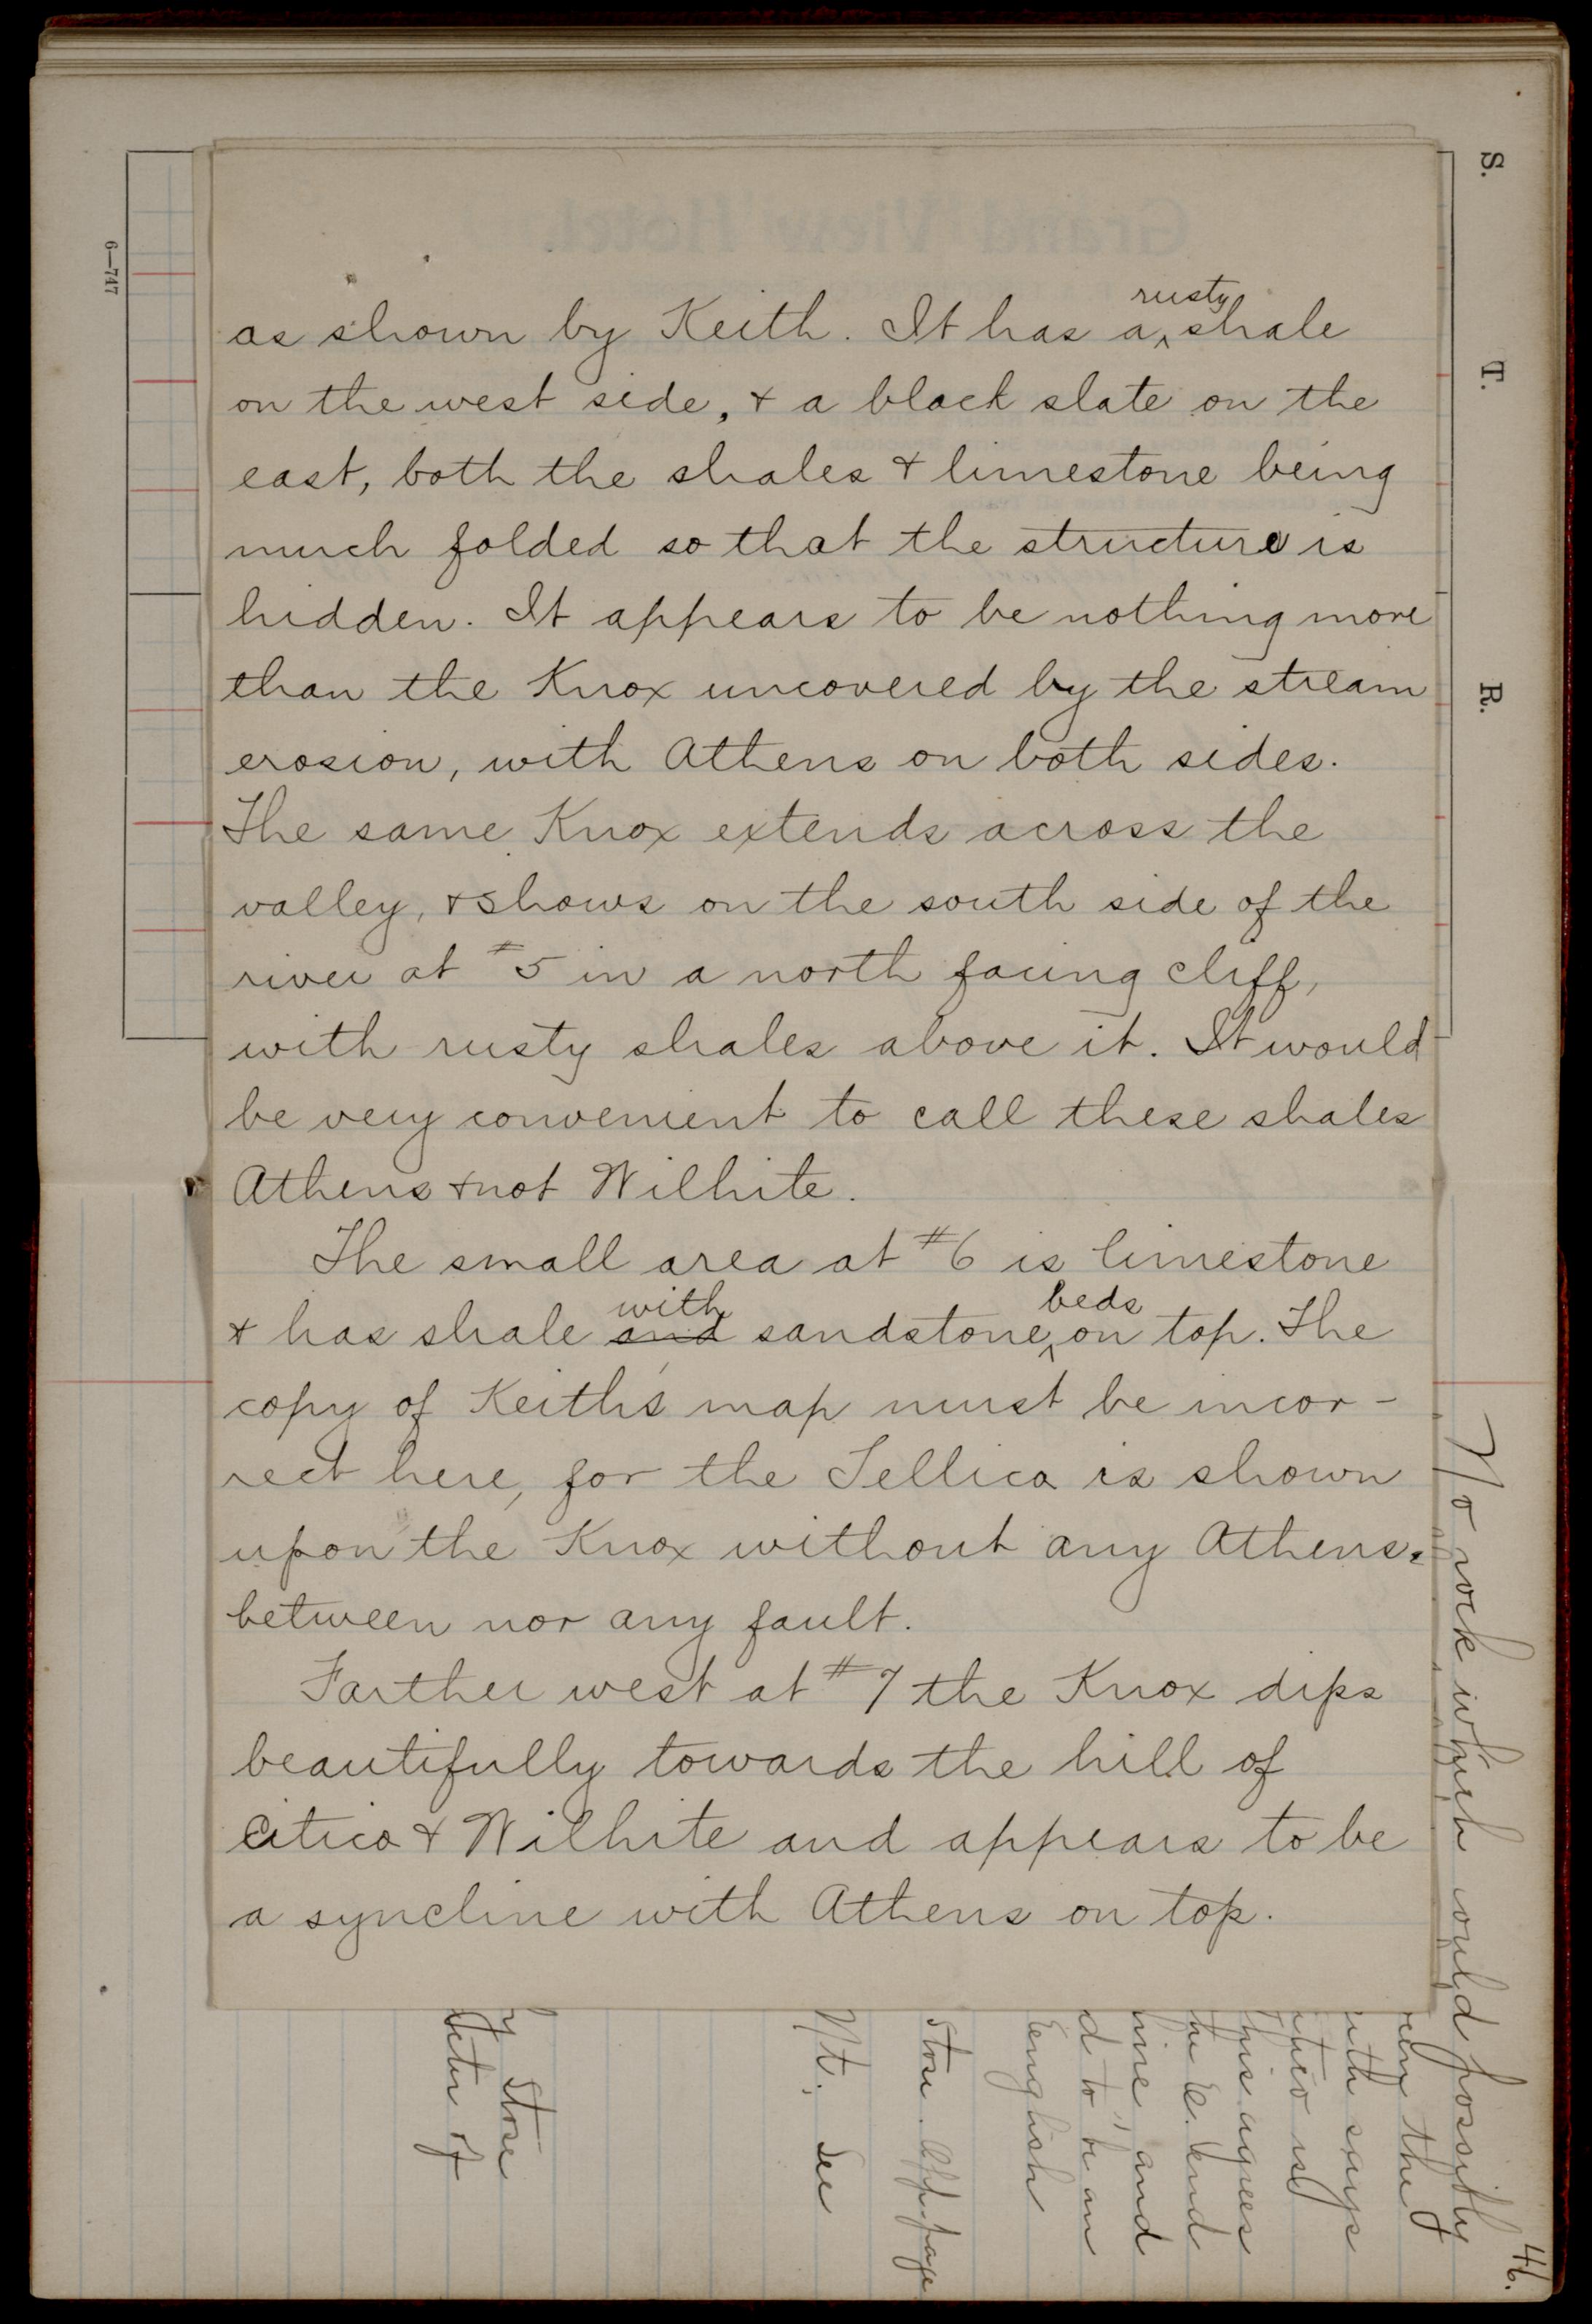 S. T. R.
6—747
Grand View Hotel.
as shown by Keith. It has a rusty shale
on the west side, & a black slate on the
east, both the shales & limestone being
much folded so that the structure is
hidden. It appears to be nothing more
than the Knox uncovered by the stream
erosion, with Athens on both sides.
The same Knox extends across the
valley, & shows on the south side of the
river at #5 in a north facing cliff,
with rusty shales above it. It would
be very convenient to call these shales
Athens & not Wilhite.
The small area at #6 is limestone
& has shale and with sandstone beds on top. The
copy of Keith's map must be incor-
rect here, for the Tellico is shown
upon the Knox without any Athens
between nor any fault.
Farther west at #7 the Knox dips
beautifully towards the hill of
Citico & Wilhite and appears to be
a syncline with Athens on top.
46.
No rock which could possibly
the
says
is
agrees
E. end
and
d to be an
English
Stose. Opp. page
Mt. See
Stose
of